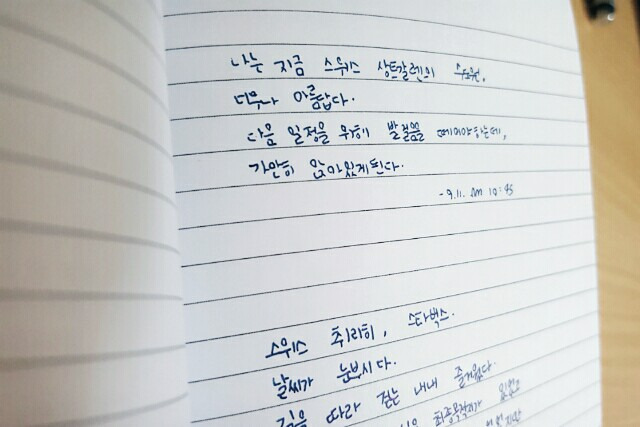 나는 지금 스위스 상트갈렌의 수도원.
너무나 아름답다.
다음 일정을 위해 발걸음을 떼어야하는데,
가만히 앉아있게된다.
- 9.11. AM 10:45
스위스 취리히, 스타벅스.
날씨가 눈부시다.
길을 따라 걷는 내내 즐거웠다.
최종목적지가 있었고